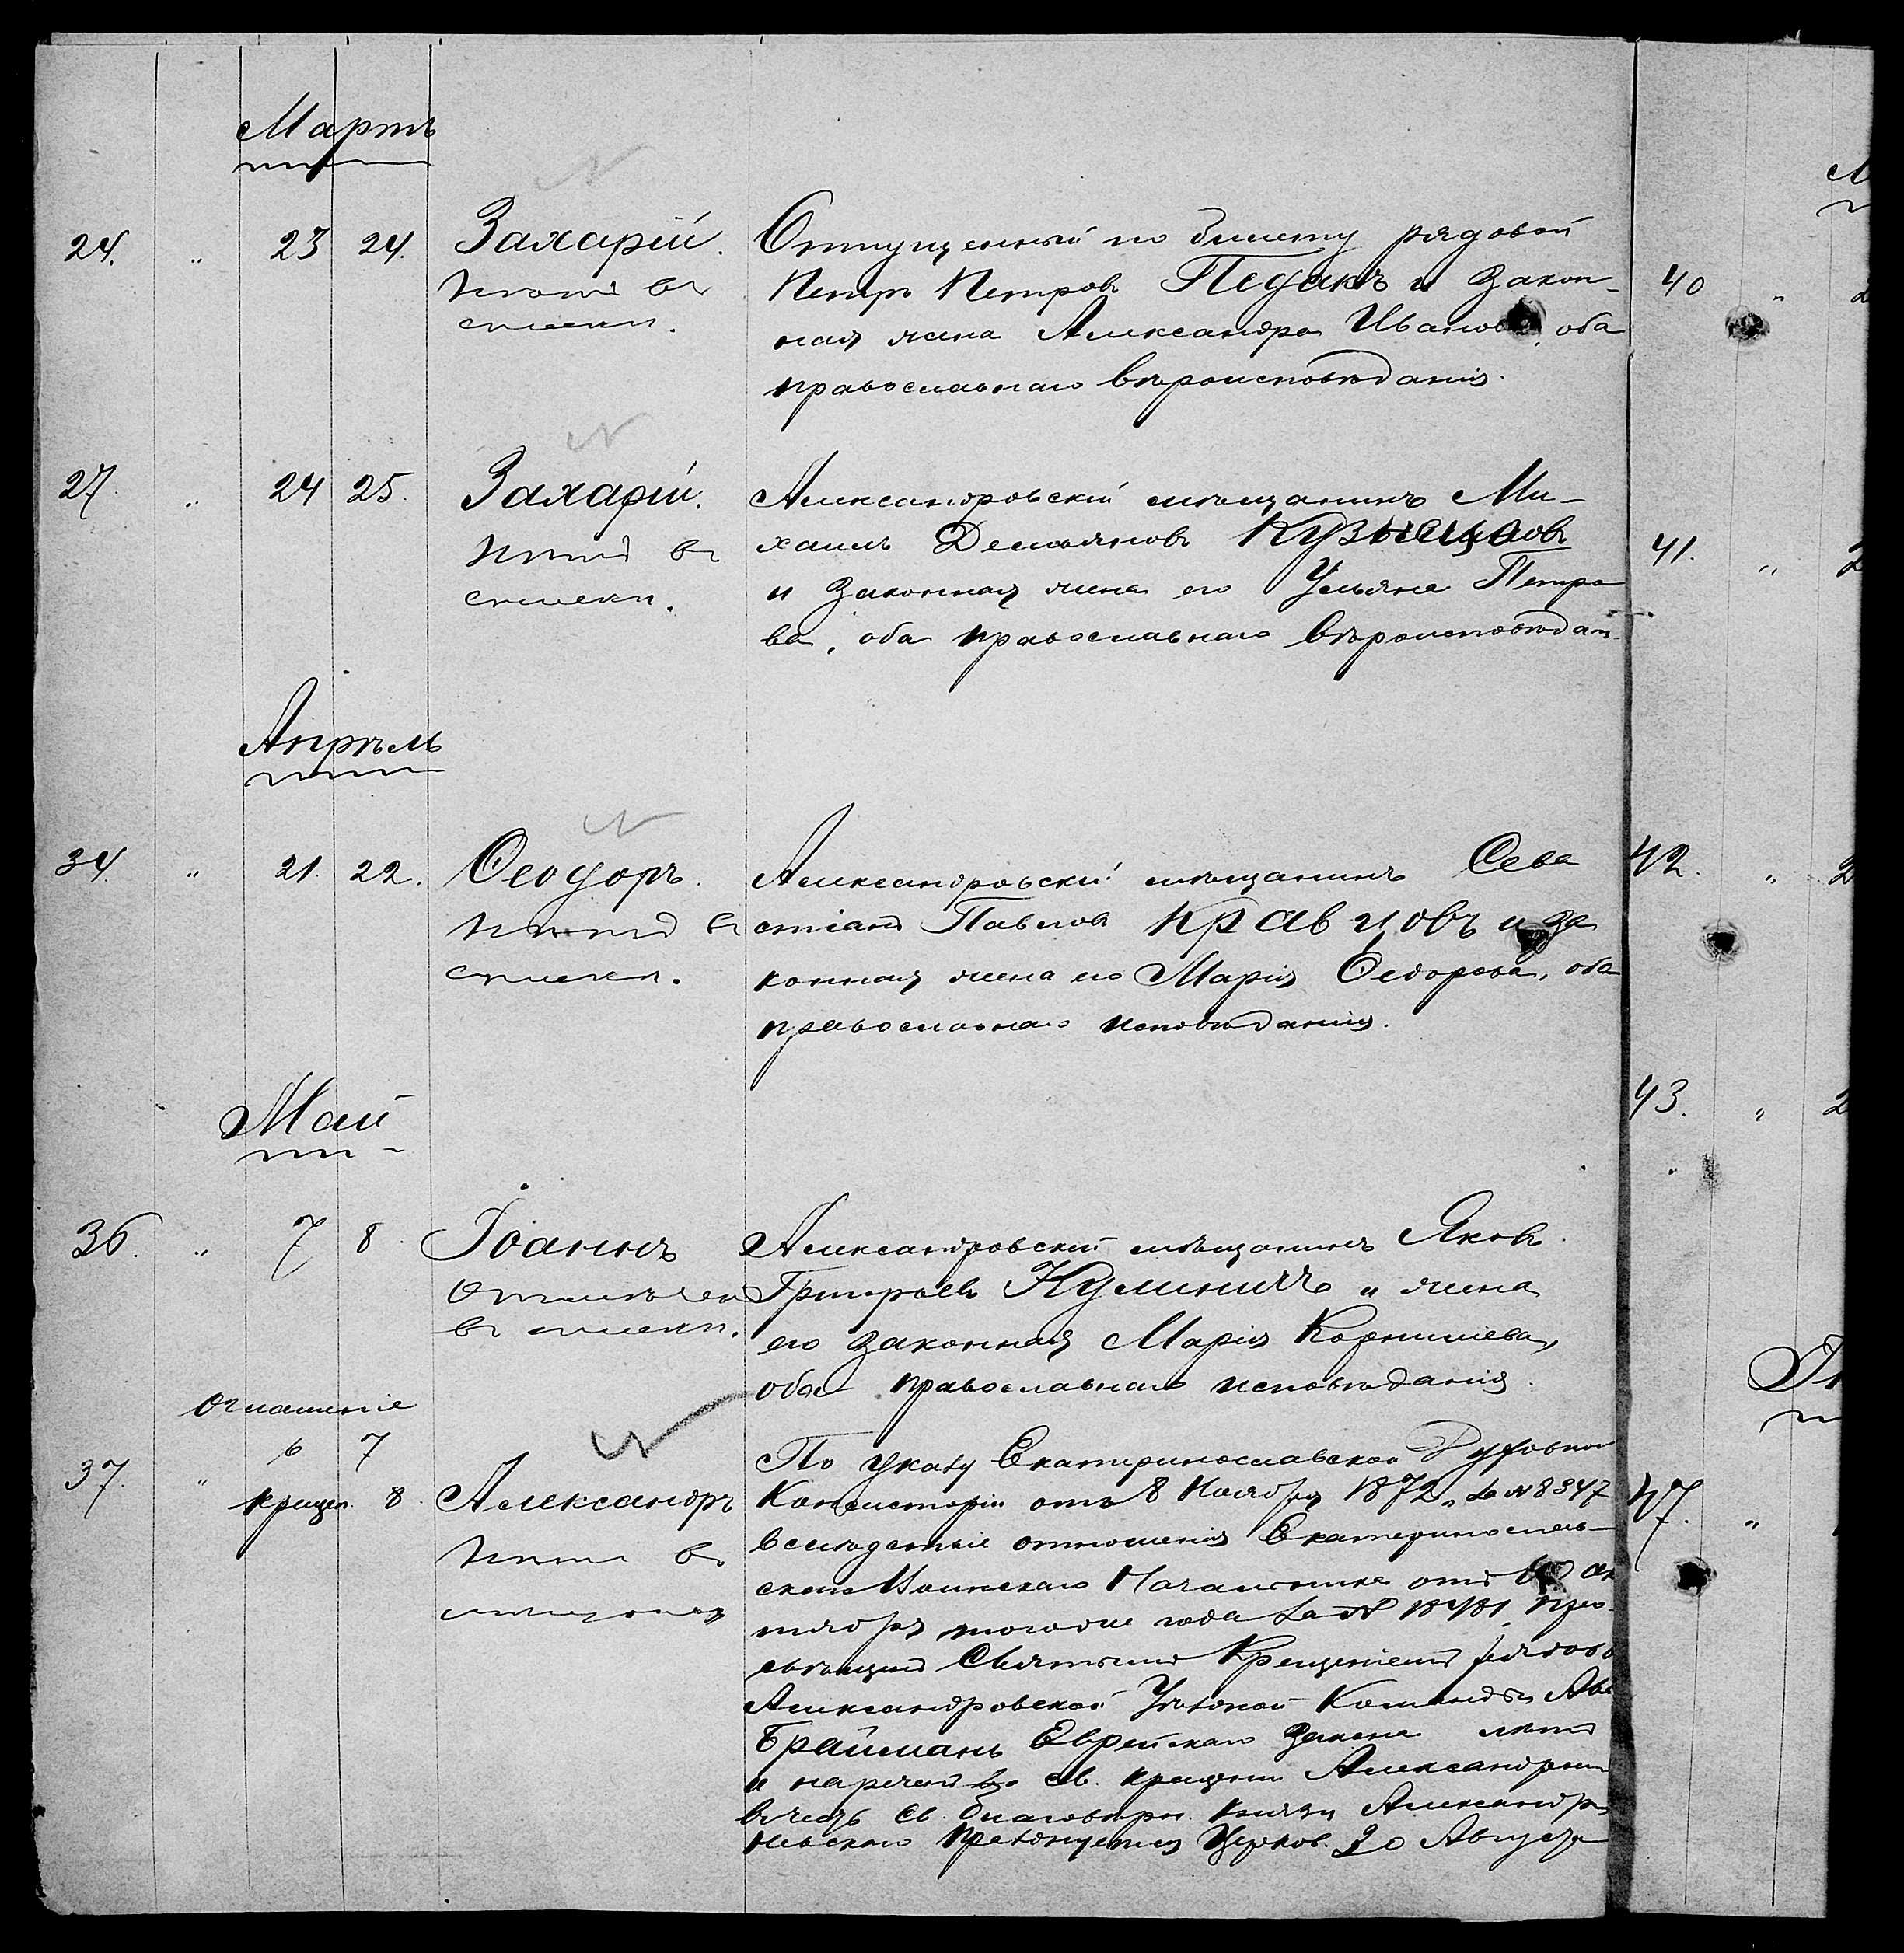 Мартъ
24. " 23 24. Захарій. Отпущенный по билету рядовой
Петръ Петровъ Педакъ и закон-
ная жена Александра Иванова, оба
православнаго вѣроисповѣданія.
27. " 24 25. Захарій. Александровскій мѣщанинъ Ми-
хаилъ Демьяновъ Кузнецовъ
и законная жена его Ульяна Петро
ва, оба православнаго вѣроисповѣдан
Апрѣль
34. " 21. 22. Ѳеодоръ. Александровскій мѣщанинъ Сева
стіанъ Павловъ Кравцовъ и за
конная жена его Марія Ѳедорова, оба
православнаго исповѣданія.
Май
36. " 7 8. Іоаннъ Александровскій мѣщанинъ Яковъ
Отмѣчен
Григорьевъ Кулиничъ и жена
въ
его законная Марія Корнилієва,
оба православнаго исповѣданія.
Оглашеніе
6 7
По указу Екатеринославской Духовной
37. " крещен. 8. Александръ Консисторіи отъ 8 Ноября 1872, за № 8347
вслѣдствіе отношенія Екатеринослав-
скаго Воинскаго Начальника отъ ок
тября того же года за № 18481, просвѣщенъ
Святымъ Крещеніемъ рядово
Александровской Уѣздной Команды
Брайманъ Еврейскаго закона лѣтъ
и нареченъ въ св. крещеніи Александромъ
въ честь Св. Благовѣрн. Князя Александра
Невскаго празднуемаго Церков. 30 Августа
40 "
41. " 2
42. " 2
43. " 2
47. "